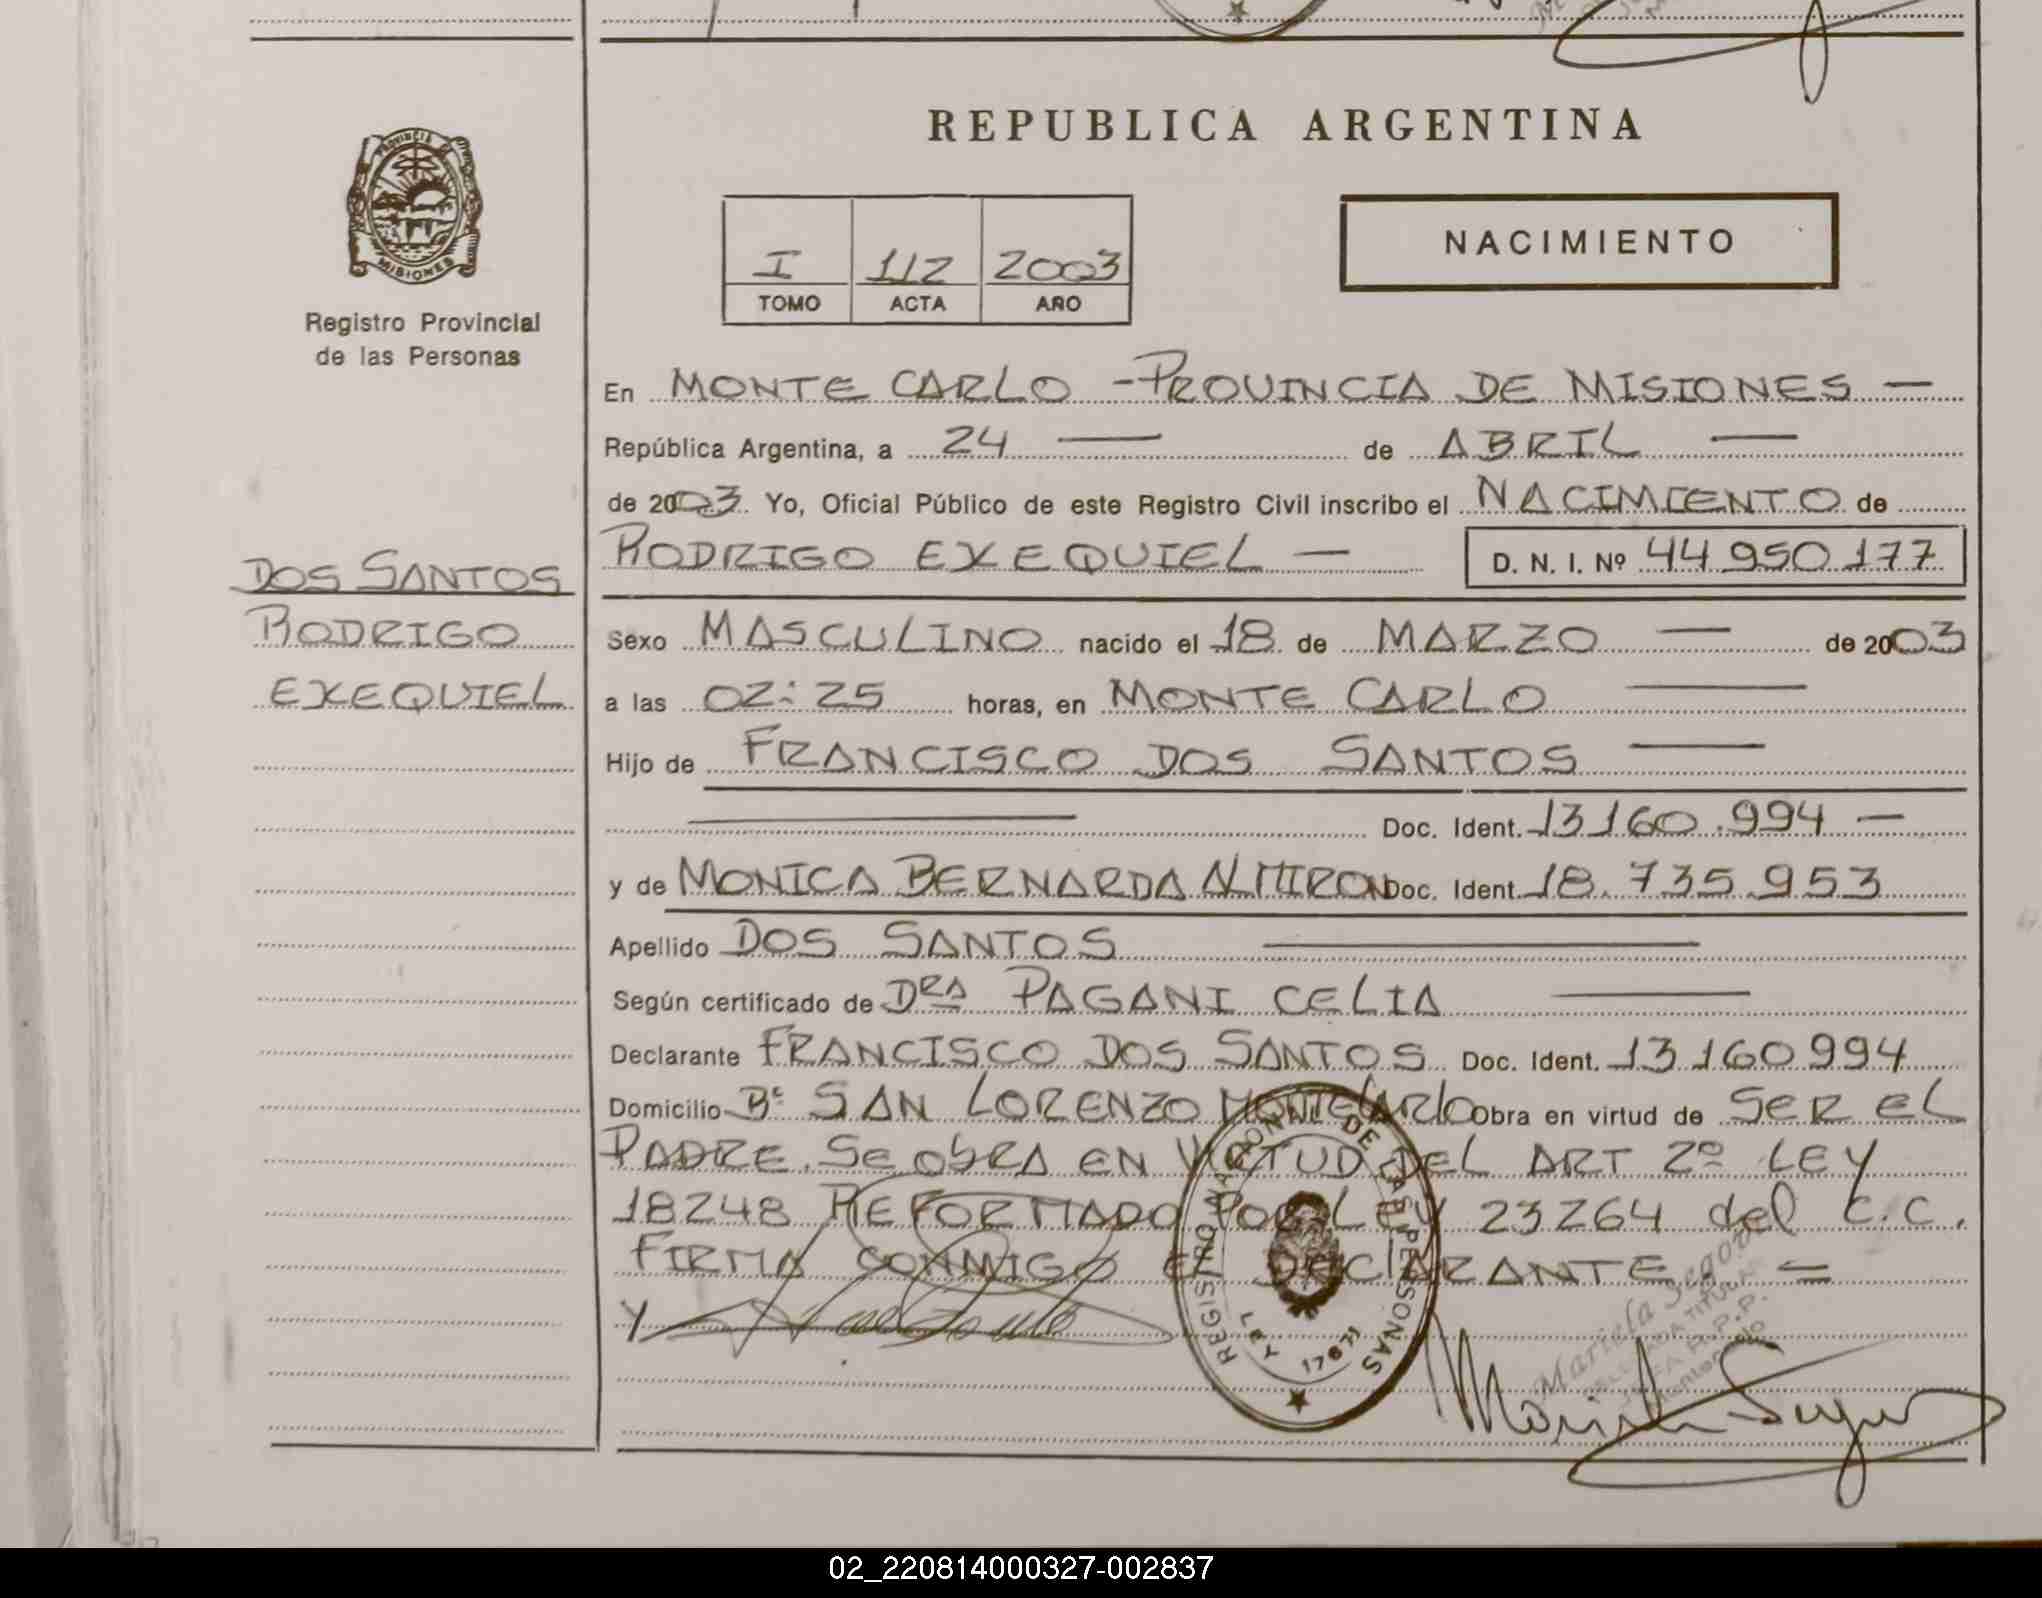 REPUBLICA ARGENTINA
PROVINCIA DE
MISIONES
Registro Provincial
de las Personas
I 112 2003
TOMO ACTA AÑO
NACIMIENTO
En MONTE CARLO - PROVINCIA DE MISIONES —
República Argentina, a 24 — de ABRIL —
de 2003 Yo, Oficial Público de este Registro Civil inscribo el NACIMIENTO de
RODRIGO EXEQUIEL — D. N. I. Nº 44 950.177
DOS SANTOS
RODRIGO
EXEQUIEL
Sexo MASCULINO nacido el 18 de MARZO — de 2003
a las 02:25 horas, en MONTE CARLO —
Hijo de FRANCISCO DOS SANTOS —
— Doc. Ident. 13160.994 —
y de MONICA BERNARDA ALMIRON Doc. Ident. 18.735.953
Apellido DOS SANTOS —
Según certificado de DRA PAGANI CELIA —
Declarante FRANCISCO DOS SANTOS Doc. Ident. 13160994
Domicilio Bº SAN LORENZO MONTECARLO Obra en virtud de SER EL
PADRE. SE OBRA EN VIRTUD DEL ART 2º LEY
18248 REFORMADO POR LEY 23264 del C.C.
FIRMA CONMIGO EL DECLARANTE. —
Y
REGISTRO NACIONAL DE LAS PERSONAS
LEY 17671
Mariela Segovia
DELEGADA TITULAR
JEFA R.P.P.
Montecarlo
02_220814000327-002837